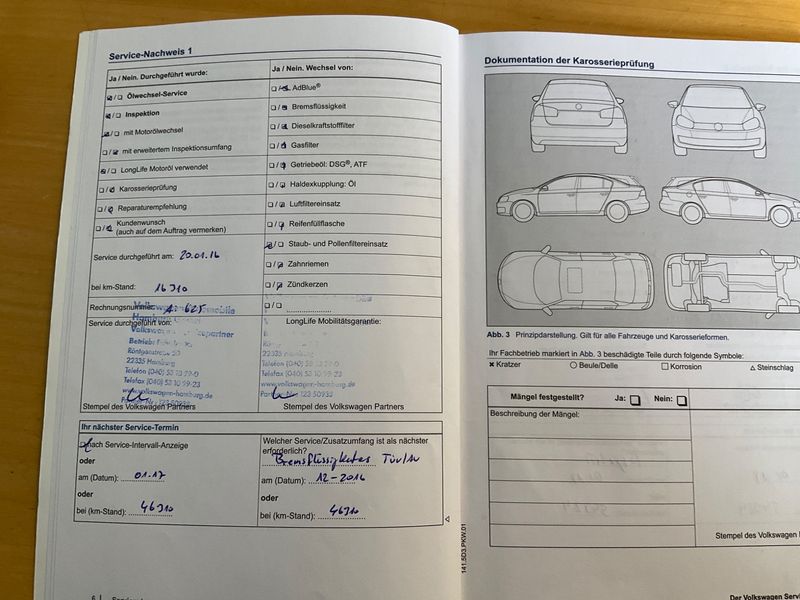 Service-Nachweis 1
Ja / Nein. Durchgeführt wurde:
Ölwechsel-Service
Inspektion
mit Motorölwechsel
mit erweitertem Inspektionsumfang
LongLife Motoröl verwendet
Karosserieprüfung
Reparaturempfehlung
Kundenwunsch
(auch auf dem Auftrag vermerken)
Service durchgeführt am: 20.01.16
bei km-Stand: 16310
Rechnungsnummer:
Service durchgeführt von:
22335 Hamburg
Telefon (040)
Telefax (040) 53 10 99-23
www.volkswagen-hamburg.de
Stempel des Volkswagen Partners
Ja / Nein. Wechsel von:
AdBlue®
Bremsflüssigkeit
Dieselkraftstofffilter
Gasfilter
Getriebeöl: DSG®, ATF
Haldexkupplung: Öl
Luftfiltereinsatz
Reifenfüllflasche
Staub- und Pollenfiltereinsatz
Zahnriemen
Zündkerzen
LongLife Mobilitätsgarantie:
22335 Hamburg
Telefon (040)
Telefax (040) 53 10 99-23
www.volkswagen-hamburg.de
Stempel des Volkswagen Partners
Ihr nächster Service-Termin
nach Service-Intervall-Anzeige
oder
am (Datum): 01.17
oder
bei (km-Stand): 46310
Welcher Service/Zusatzumfang ist als nächster
erforderlich?
am (Datum): 12-2016
oder
bei (km-Stand): 46310
6
Dokumentation der Karosserieprüfung
Abb. 3 Prinzipdarstellung. Gilt für alle Fahrzeuge und Karosserieformen.
Ihr Fachbetrieb markiert in Abb. 3 beschädigte Teile durch folgende Symbole:
Kratzer Beule/Delle Korrosion Steinschlag
Mängel festgestellt? Ja: Nein:
Beschreibung der Mängel:
Stempel des Volkswagen
141.5D3.PKW.01
Der Volkswagen